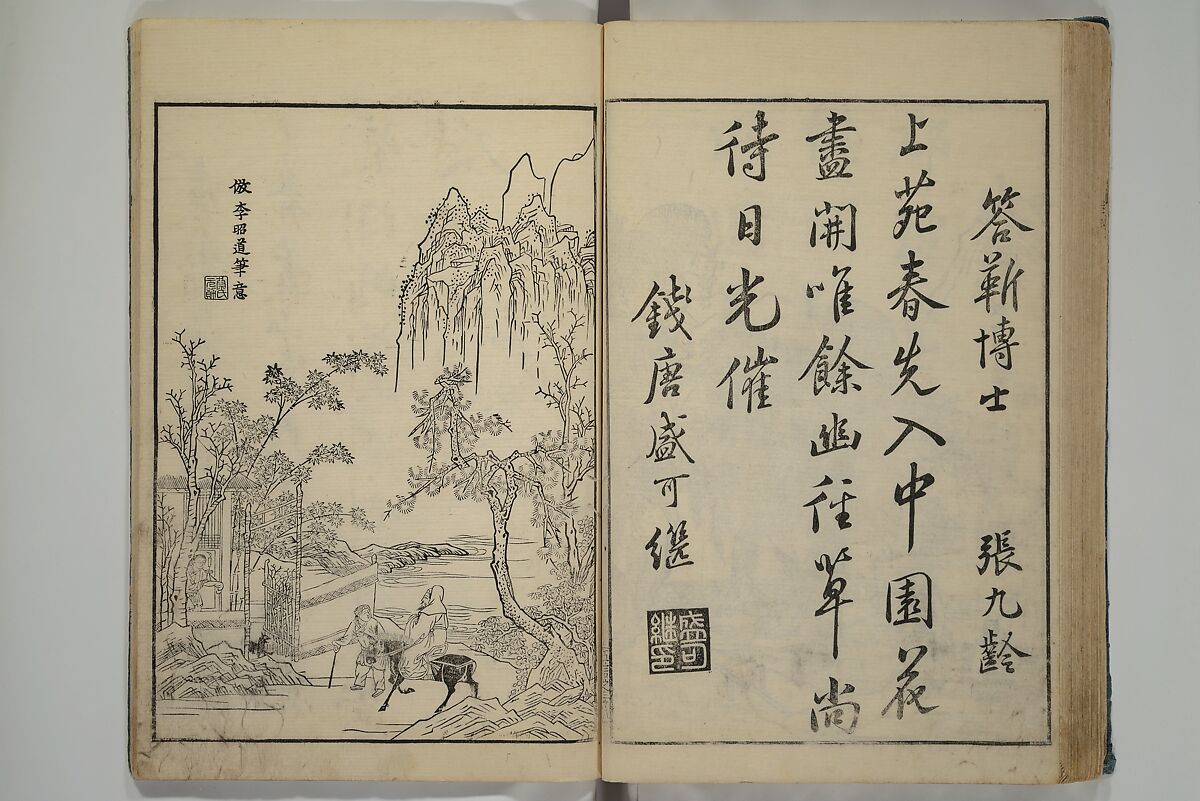 答靳博士 張九齡
上苑春先入中園花
盡開唯餘幽徑草尚
待日光催
錢唐盛可繼
盛可繼印
倣李昭道筆意